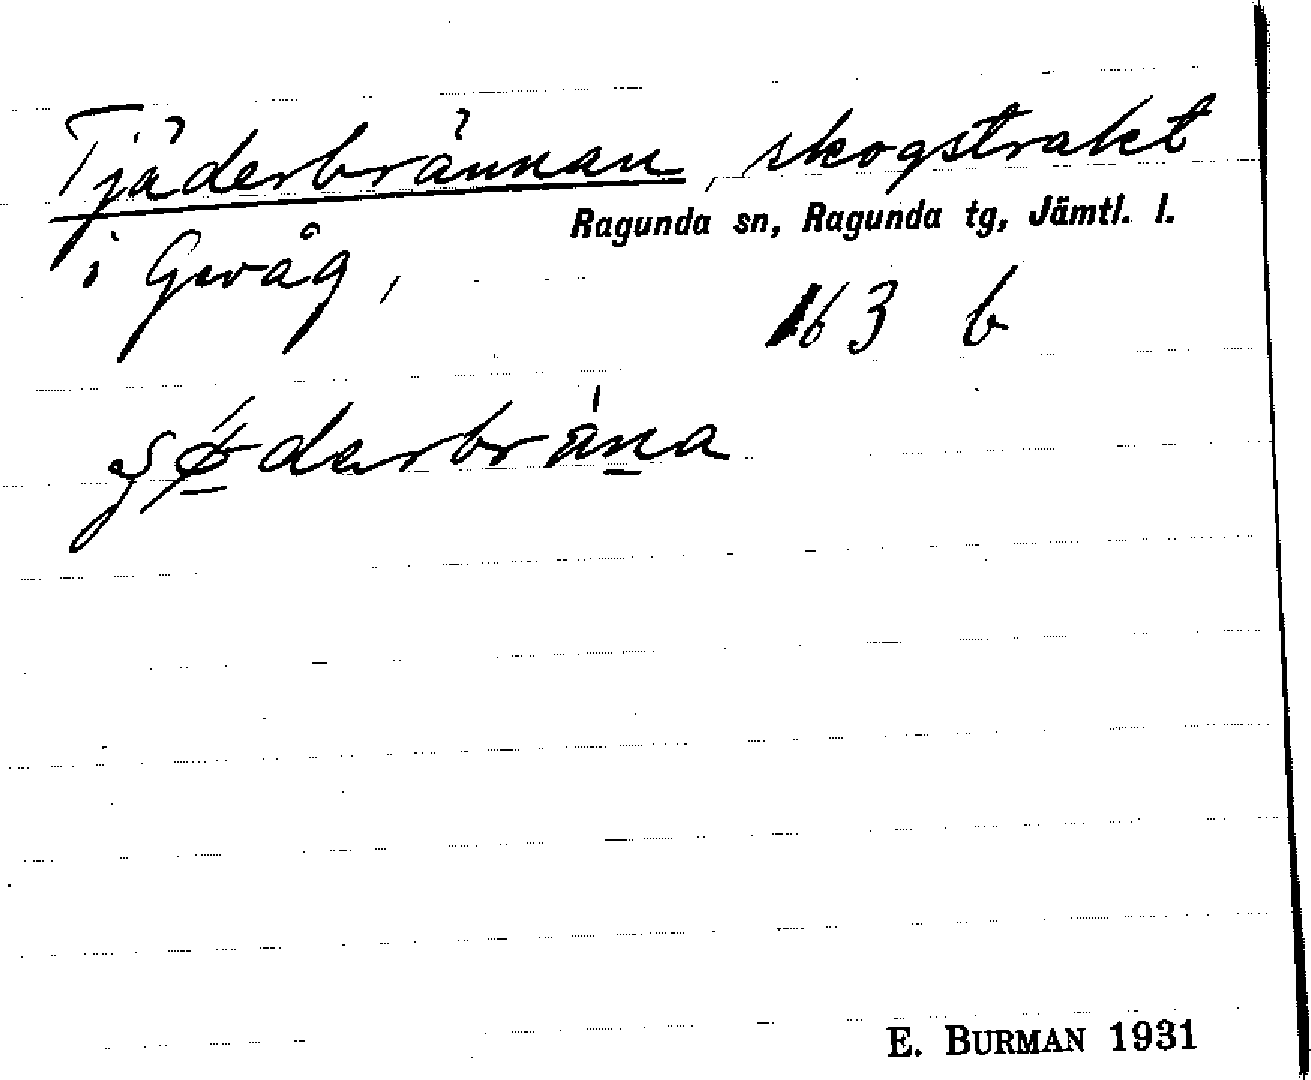 Tjäderbrännan, skogstrakt
Ragunda sn, Ragunda tg, Jämtl. l.
i Gevåg,
163 b
E. BURMAN 1931